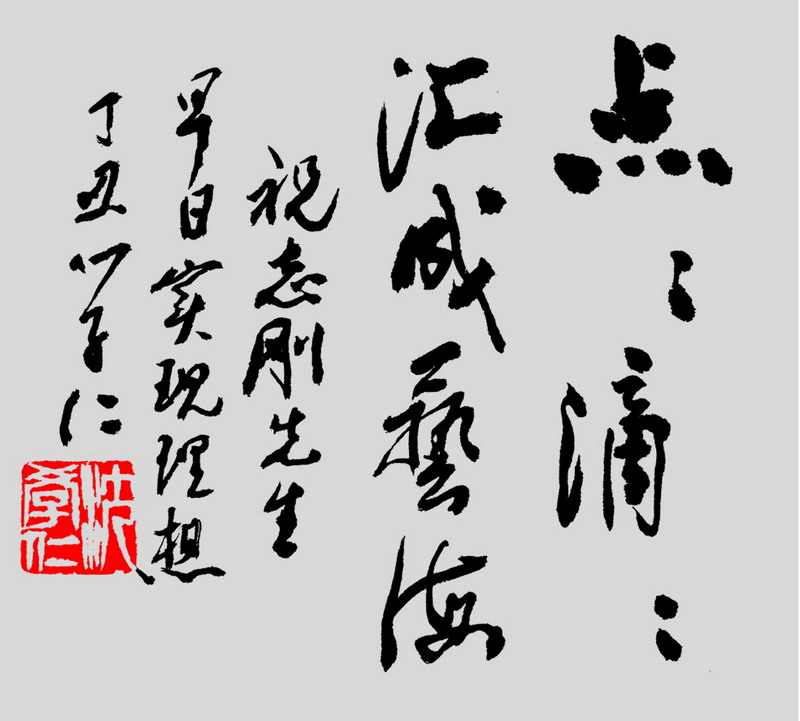 点〻滴〻
汇成藝海
祝志刚先生
早日实现理想
丁丑学仁
沈学仁